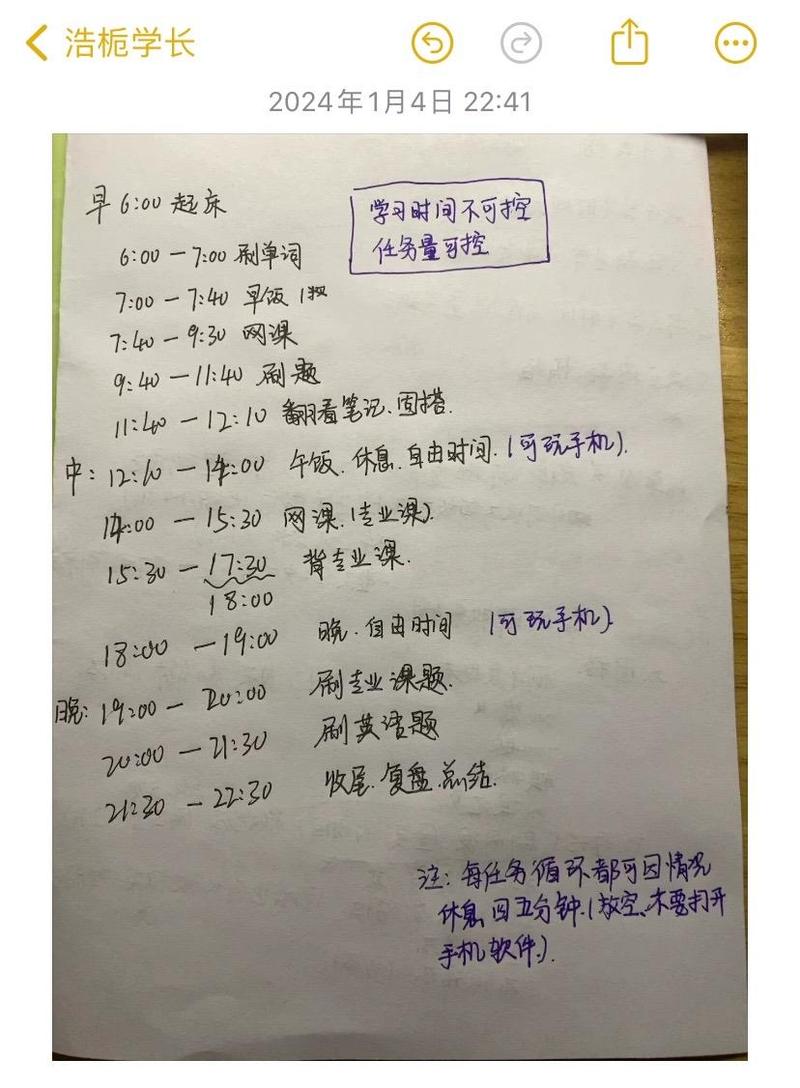 浩栀学长
2024年1月4日 22:41
早 6:00 起床
学习时间不可控
任务量可控
6:00 — 7:00 刷单词
7:00 — 7:40 早饭
7:40 — 9:30 网课
9:40 — 11:40 刷题
11:40 — 12:10 翻看笔记、固搭.
中: 12:10 — 14:00 午饭、休息、自由时间. (可玩手机).
14:00 — 15:30 网课. (专业课).
15:30 — 17:30 背专业课.
18:00
18:00 — 19:00 晚. 自由时间 (可玩手机).
晚: 19:00 — 20:00 刷专业课题.
20:00 — 21:30 刷英语题
21:30 — 22:30 收尾. 复盘. 总结.
注: 每任务循环都可因情况
休息四五分钟. (放空、不要打开
手机软件.).